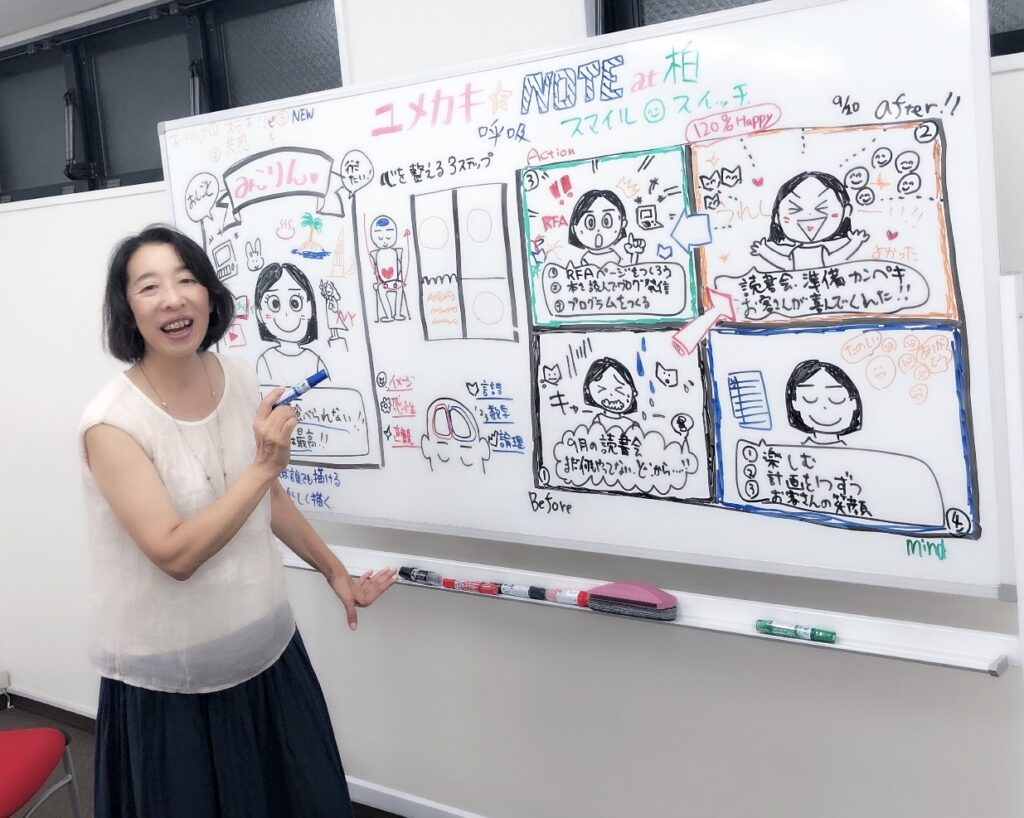 NEW
ユメカキ☆NOTE at 柏
呼吸
スマイル スイッチ
120% Happy
9/20 after!!
共感
みこりん
心を整える3ステップ
イメージ
感性
直観
言語
数字
論理
最高!!
Action
③
!!
RFA
① RFAページをつくろう
② 本を読んでブログ発信
③ プログラムをつくる
②
うれしーい!!
よかった
読書会、準備カンペキ
お客さんが喜んでくれた!!
①
キャー
9月の読書会
Before
たのしい
① 楽しむ
② 計画を1つずつ
③ お客さんの笑顔
④
mind